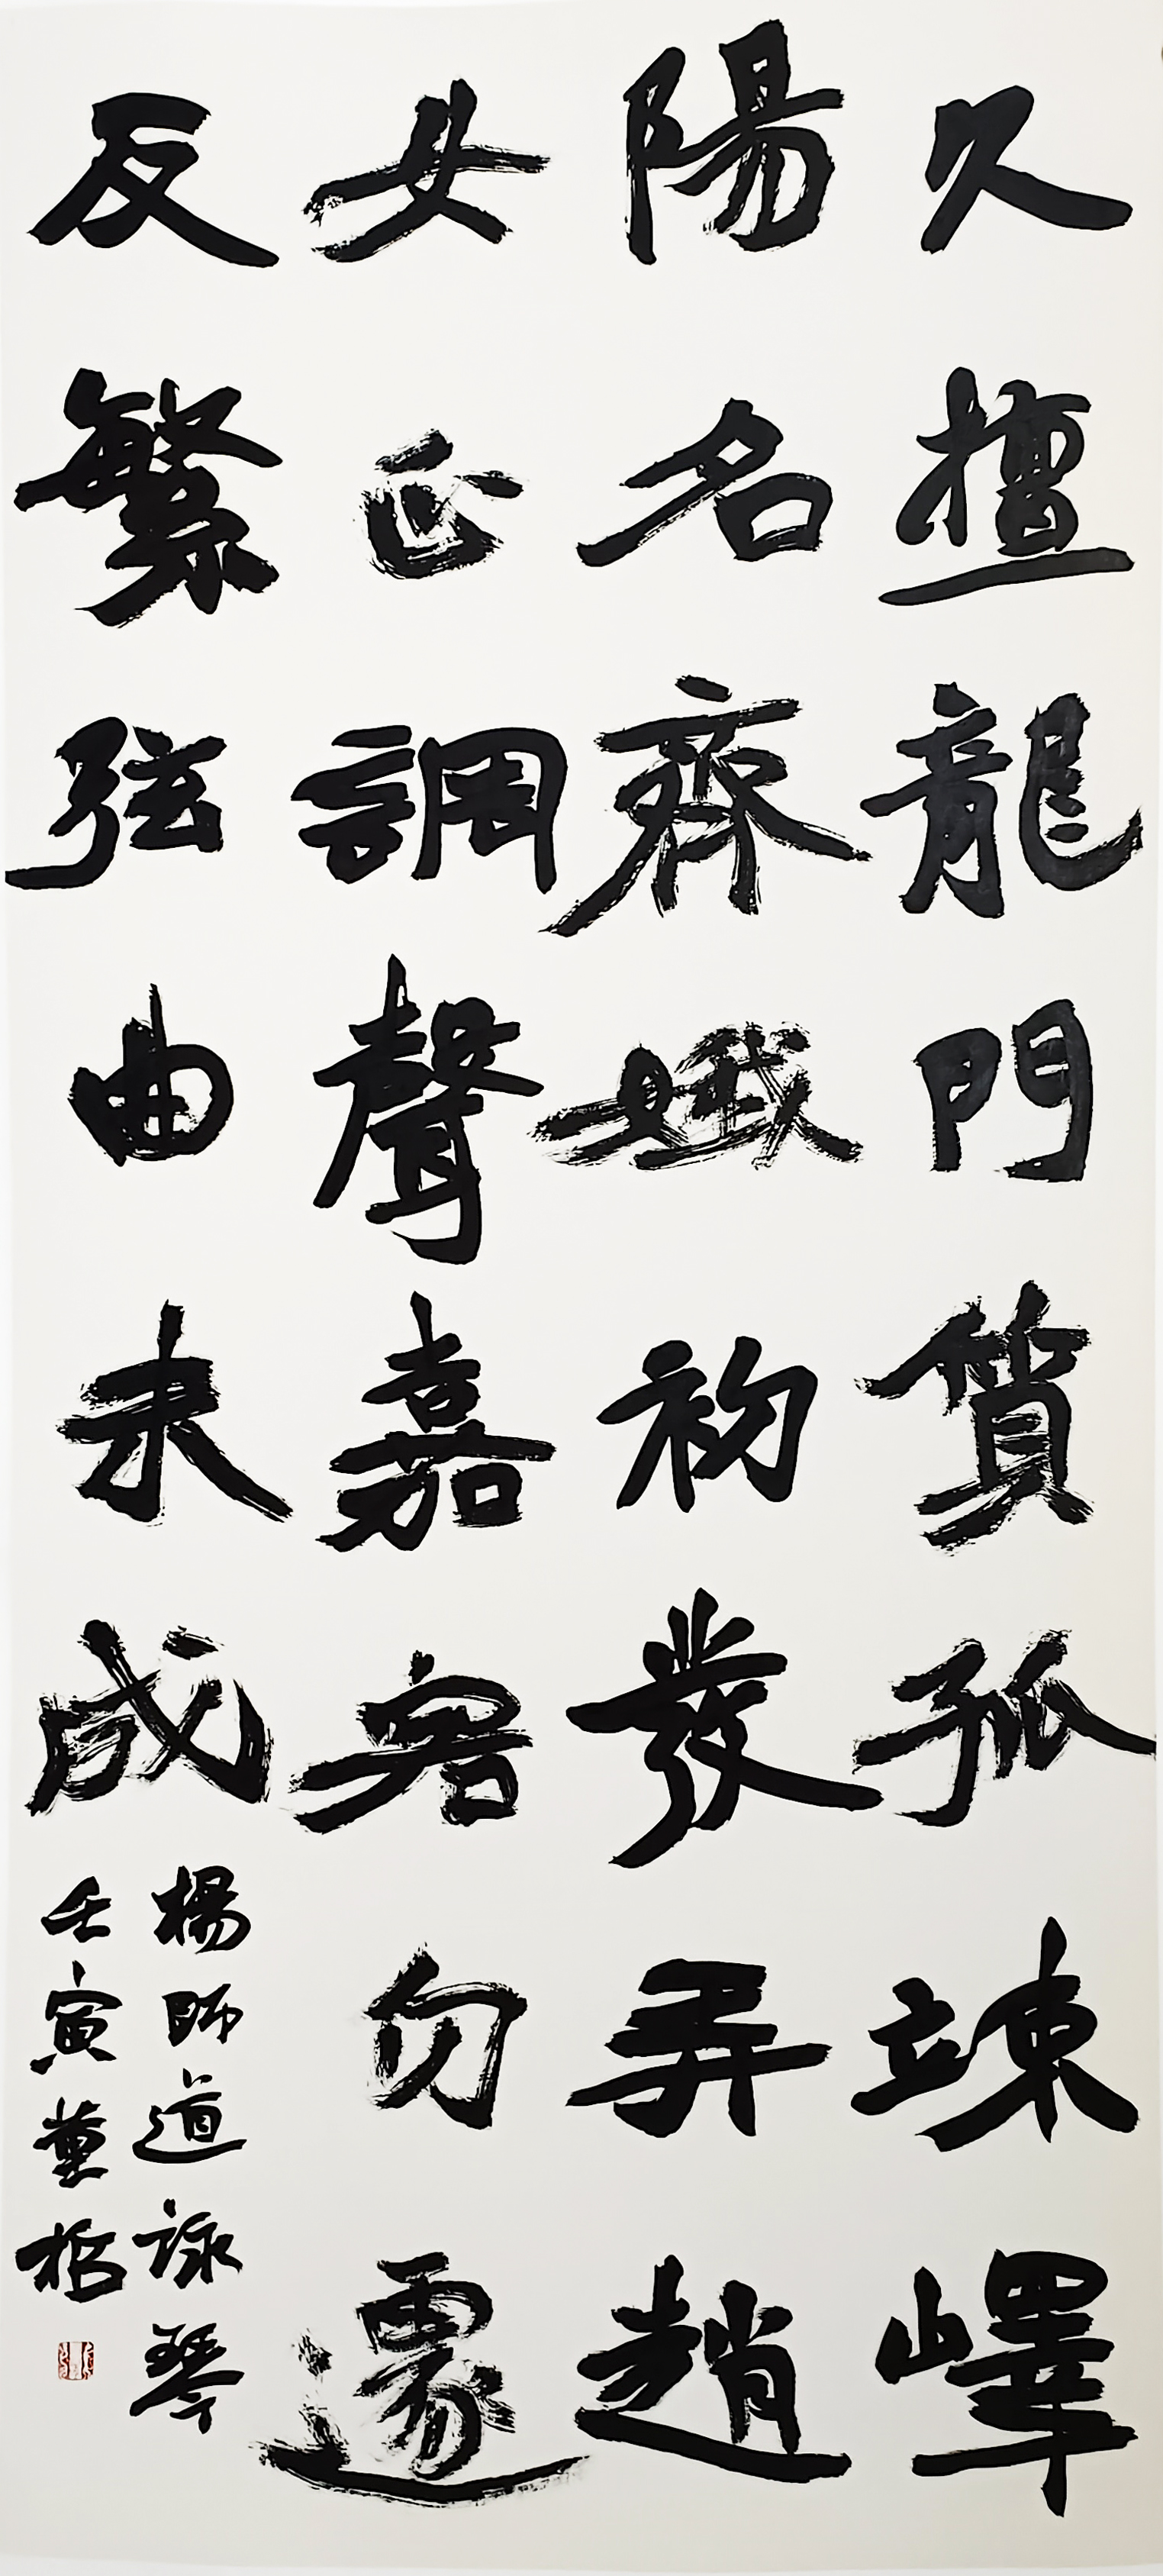 久擅龍門質孤竦嶧
陽名齊娥初發弄趙
女正調聲嘉客勿遽
反繁弦曲未成
楊師道詠琴
壬寅董